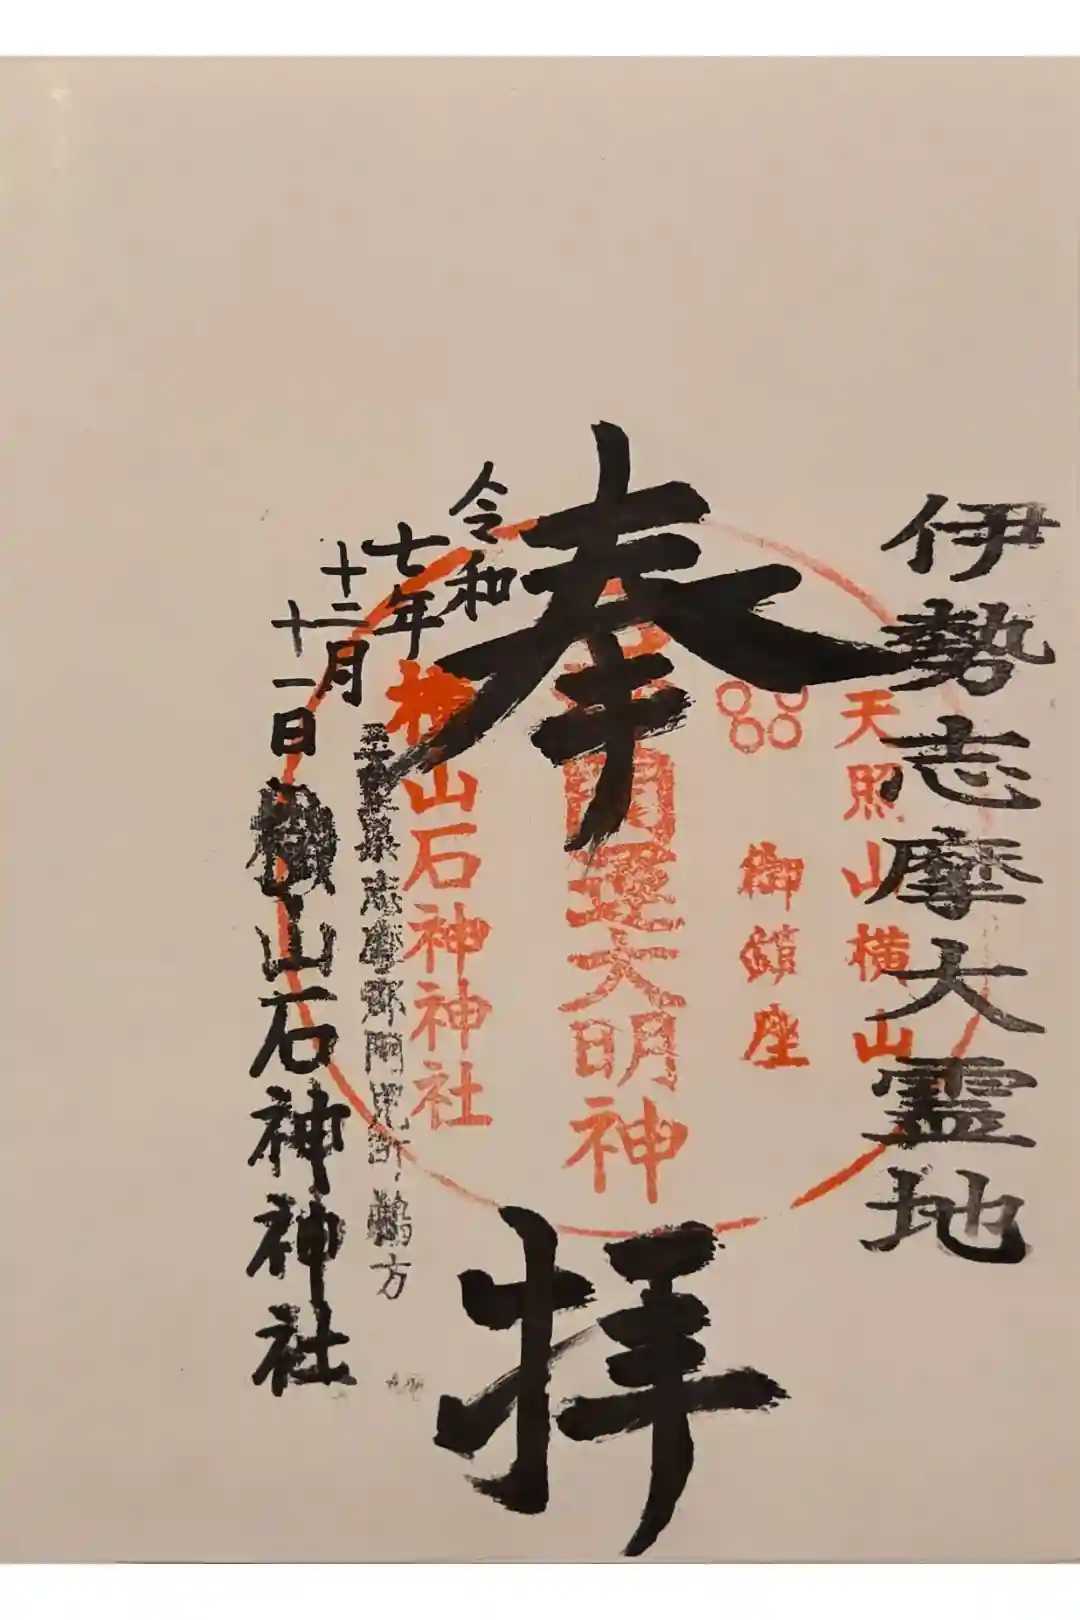 伊勢志摩大霊地
天照山横山
御鎮座
奉拝
開運大明神
横山石神神社
令和
七年
十二月
十一日
三重県志摩市阿児町鵜方
横山石神神社